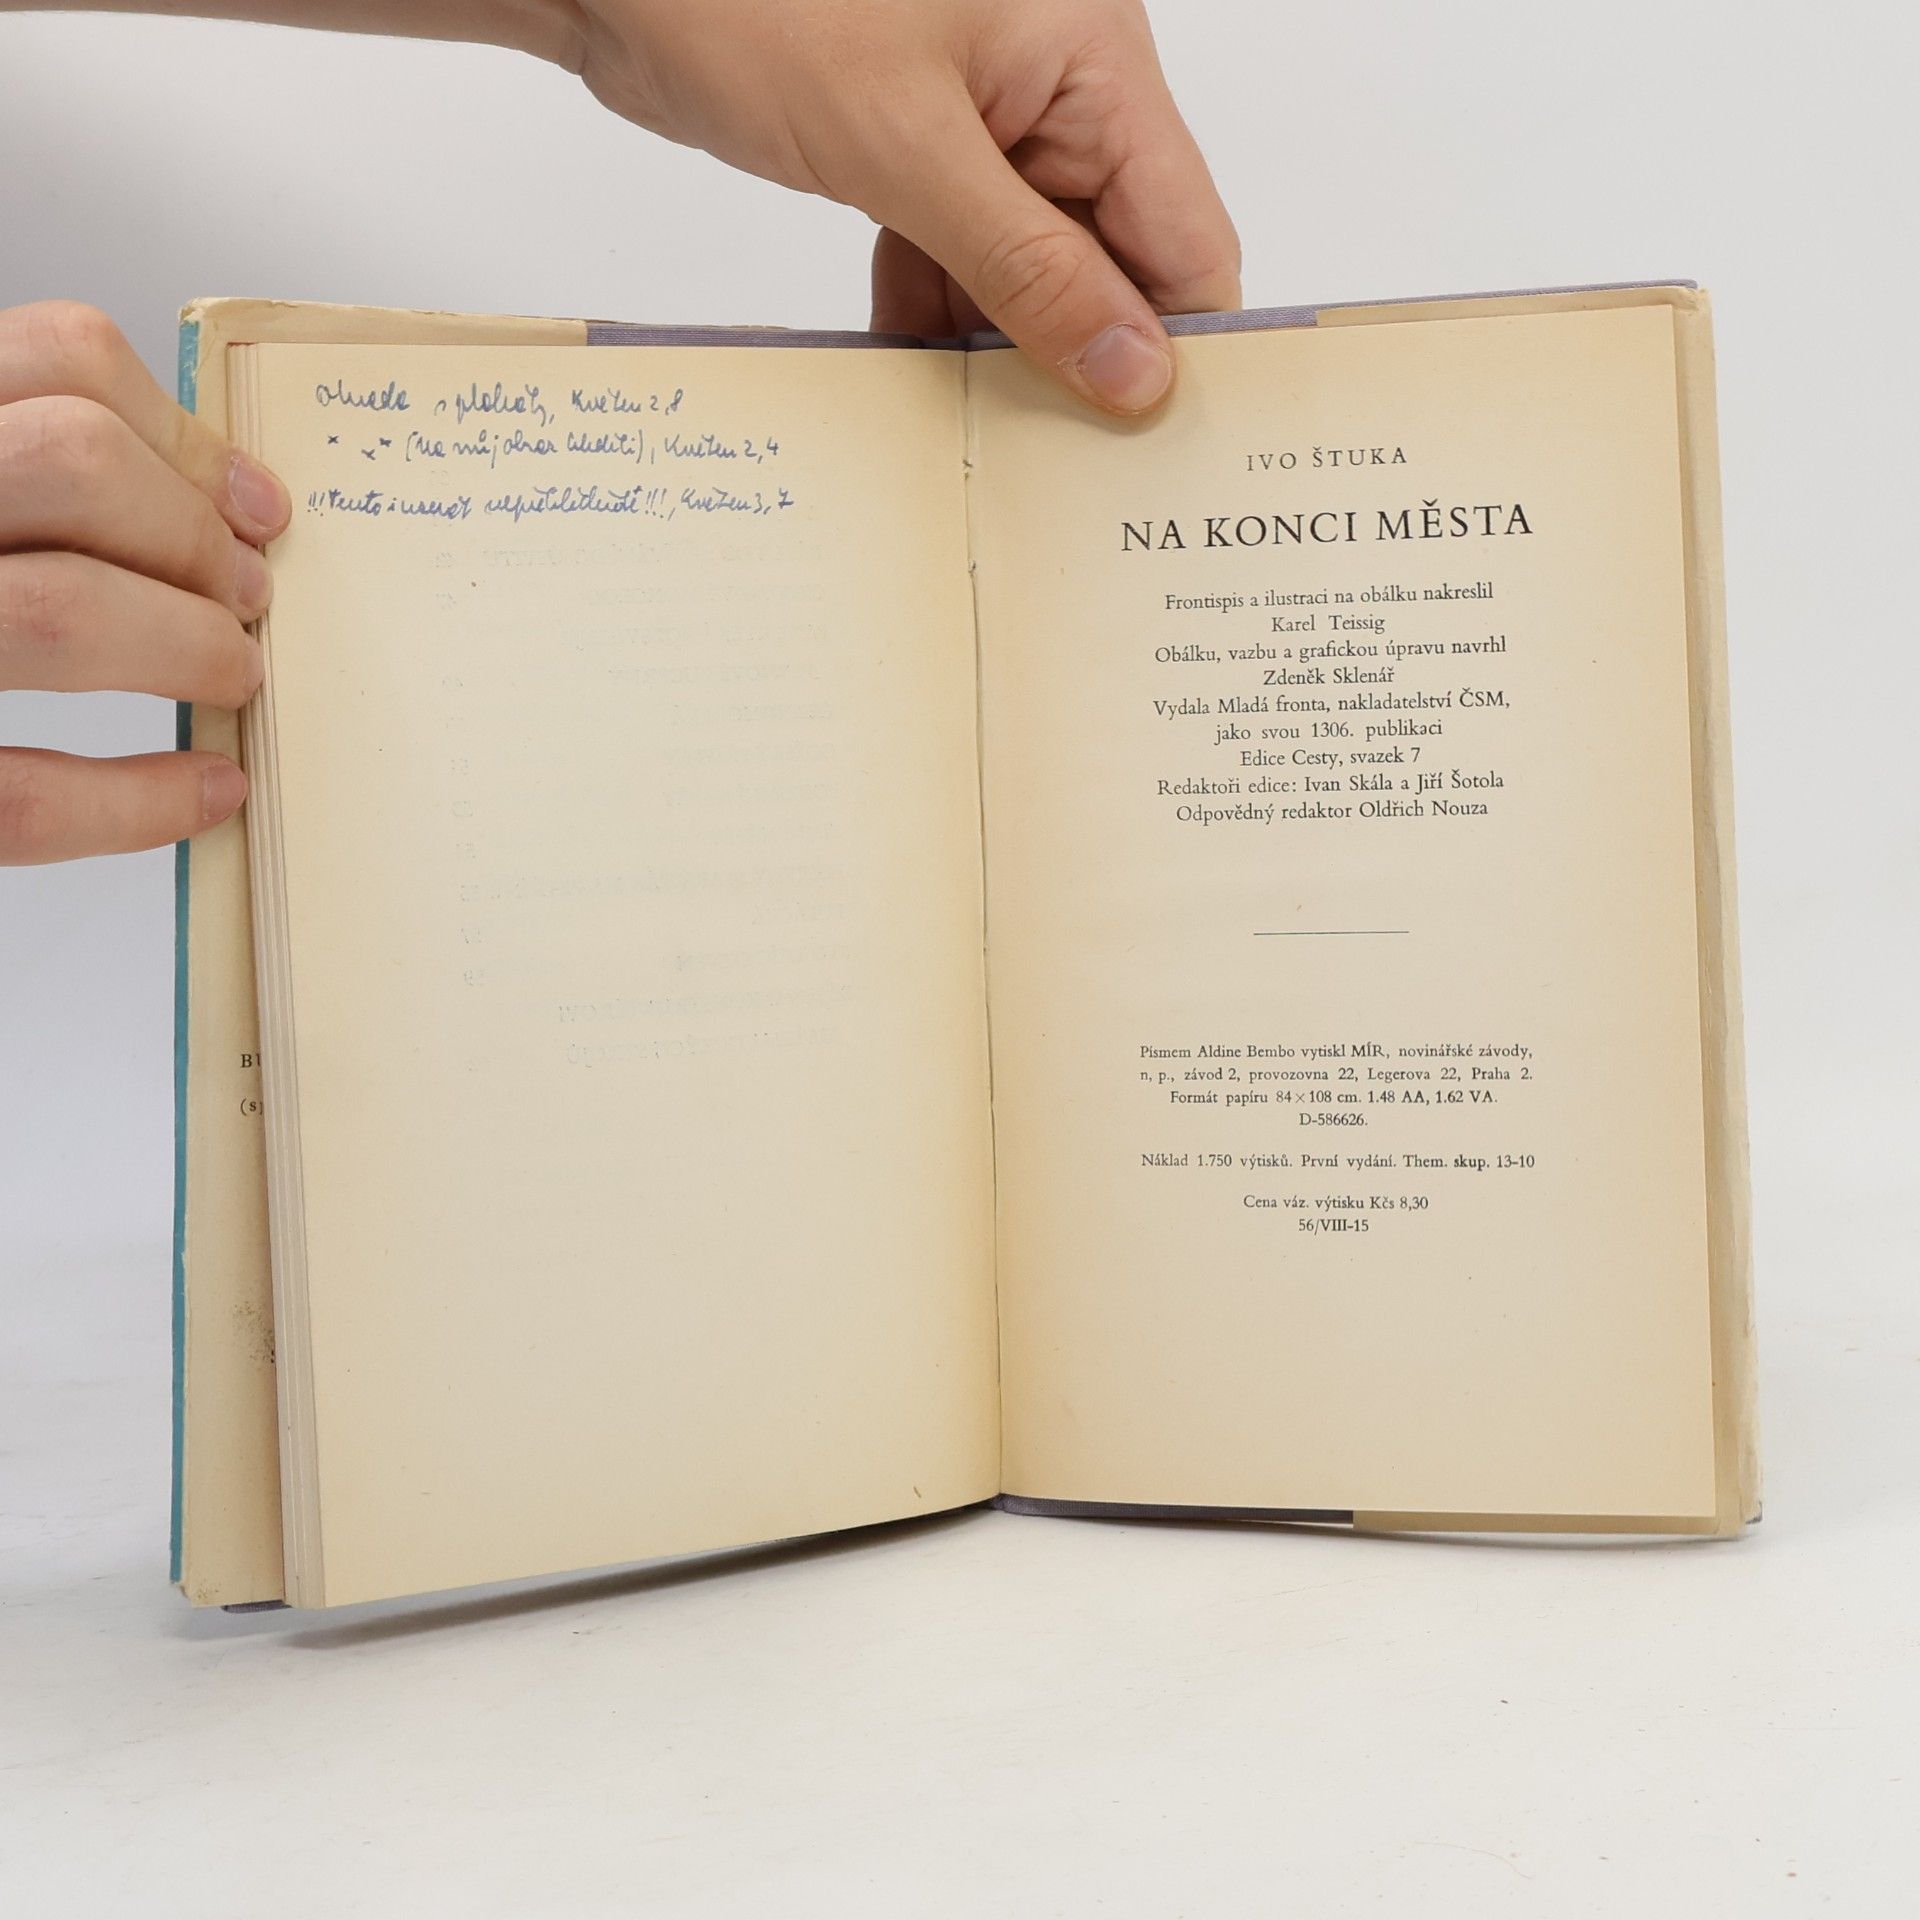 Ohrada s plakáty, Květen 2, 8
* * * (Na můj obraz hleděti), Květen 2, 4
!!! Tento inzerát nepřehlédněte !!!, Květen 3, 7
IVO ŠTUKA
NA KONCI MĚSTA
Frontispis a ilustraci na obálku nakreslil
Karel Teissig
Obálku, vazbu a grafickou úpravu navrhl
Zdeněk Sklenář
Vydala Mladá fronta, nakladatelství ČSM,
jako svou 1306. publikaci
Edice Cesty, svazek 7
Redaktoři edice: Ivan Skála a Jiří Šotola
Odpovědný redaktor Oldřich Nouza
Písmem Aldine Bembo vytiskl MÍR, novinářské závody,
n, p., závod 2, provozovna 22, Legerova 22, Praha 2.
Formát papíru 84×108 cm. 1.48 AA, 1.62 VA.
D-586626.
Náklad 1.750 výtisků. První vydání. Them. skup. 13-10
Cena váz. výtisku Kčs 8,30
56/VIII-15